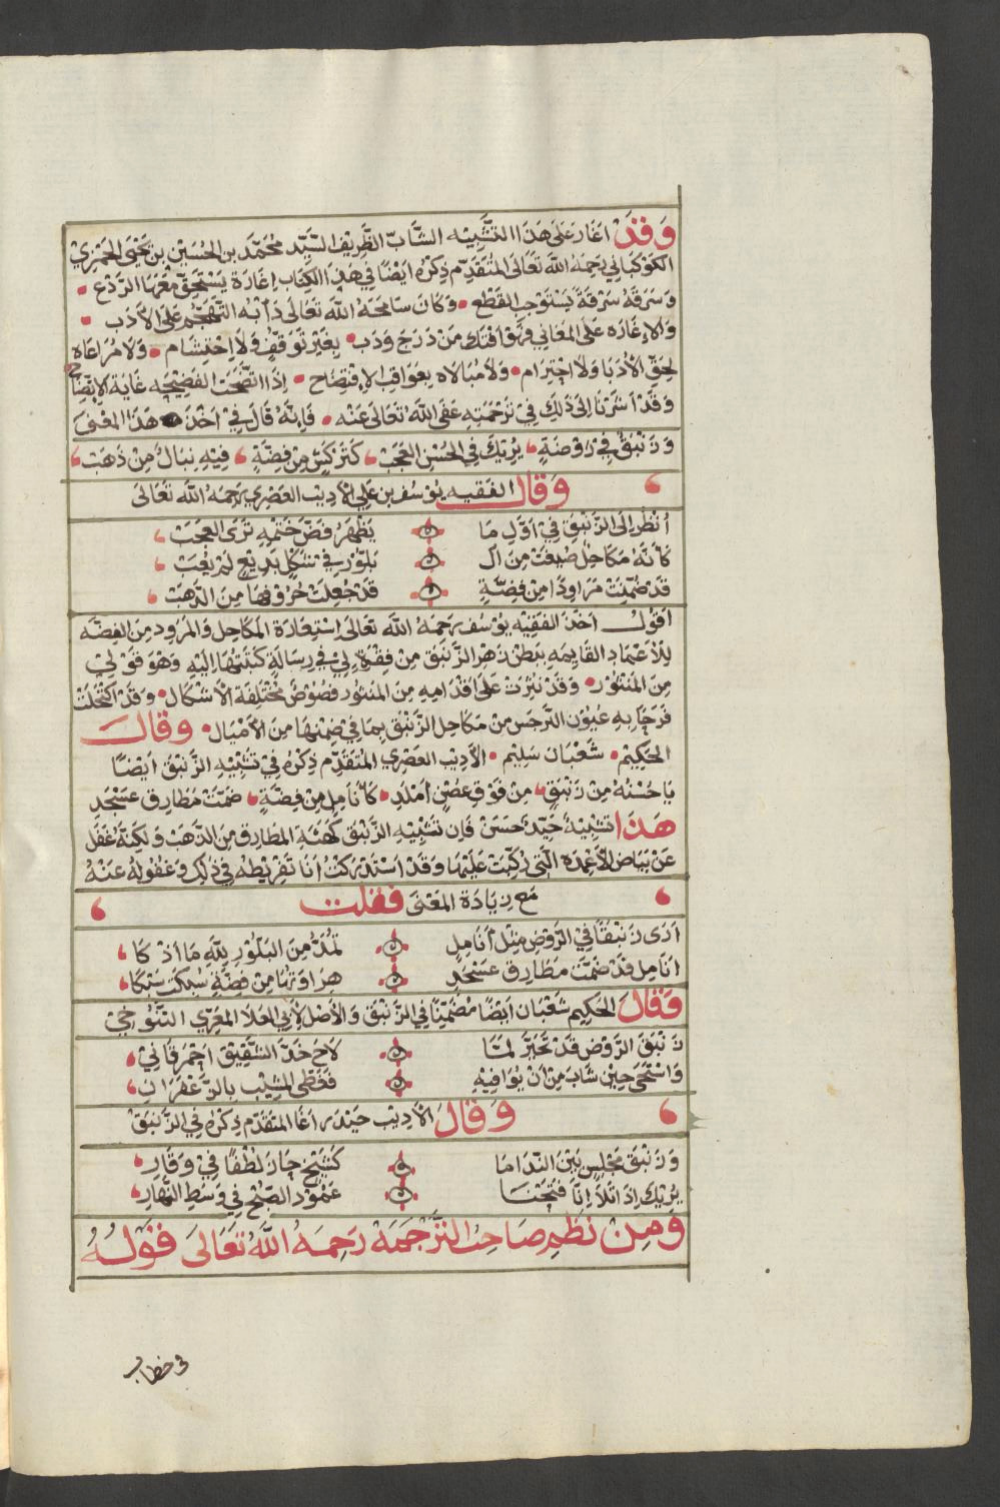 وَقَدْ اغَارَ عَلَى هَذَا التشْبِيْه الشَّابّ الظَّرِيْف السَّيّد مُحَمّد بن الحُسَيْن بن يَحْيَى الحَمْزيْ
الكَوْكَبَانِي رَحِمَهُ اللّه تَعَالَى المتقَدِّم ذِكْرُه ايْضًا فِي هَذا الكِتَاب اِغَارَة يَسْتَحِقّ مِنْهَا الرَّدْع
وَسَرَقَهُ سَرْقَةً يَسْتَوْجِب القَطْع وَكَانَ سَامَحَهُ اللّه تَعَالَى دَأبُه التَّهَجّم عَلَى الأدَب
وَالإغَارَه عَلَى المعَانِي مَنْ دَرَجَ وَدَب بِغَيْر تَوَقّفٍ وَلاَ اِحْتِشَام وَلاَ مُرَاعَاه
لِحَقّ الأدَبَا وَلاَ احْتِرَام وَلاَ مُبَالاَه بِعَوَاقِب الاِفْتِضَاح اِذَا اتّضَحَت الفَضِيْحَه غَايَة الاِتّضَاح
وَقَدْ اشَرْنَا اِلَى ذَلِكَ فِيْ تَرْجَمَتِهِ عَفَى اللّه تَعَالَى عَنْه فَاِنّه قَالَ فِيْ اَخْذ هَذَا المعْنَى
وَزَنْبَقٌ فِيْ رَوْضَةٍ يُرِيْكَ فِي الحُسْن العَجَبْ كَتَرْكَشٍ مِنْ فِضّةٍ فِيْهِ نِبَالٌ مِنْ ذَهَبْ
وَقَالَ الفَقِيه يُوْسُف بن عَلِي الأدِيْب العَصْرِي رَحِمَهُ اللّه تَعَالَى
اُنْظُر اِلَى الزَّنْبَقِ فِيْ اَوّلِ مَا يَظْهَرُ فَضّ خَتْمِهِ تَرَى العَجَبْ
كَأنّهُ مَكَاحِلٌ صِيْغَتْ مِنَ ال بَلّوْر فِيْ شَكْلٍ بَدِيْعٍ لَمْ يُعَبْ
قَدْ ضُمّنَتْ مَرَاوِدًا مِنْ فِضّةٍ قَدْ جُعِلَتْ حُرُوْفهَا مِنَ الذّهَبْ
اَقُوْلُ اَخَذَ الفَقِيْه يُوْسُف رَحِمَهُ اللّه تَعَالَى اسْتِعَارَة المَكَاحِل وَالمَرَوِد مِن الفِضّه
لِلأَعْمَاد القَايِمَه بِبَطْن زَهْر الزَّنْبَق مِنْ فِقْرَةٍ لِيْ فِي رِسَالَةٍ كَتَبْتُهَا اِلَيْهِ وَهْوَ قَوْلِيْ
مِنَ المَنْثُوْر وَقَدْ نَثَرَتْ عَلَى اَقْدَامِهِ مِنَ المَنْثُوْر فُصُوْصٌ مُخْتَلِفَة الأشْكَال وَقَدْ اكْتَحَلَتْ
فَرَحًا بِهِ عُيُوْن النَّرْجَس مِنْ مَكَاحِل الزَّنْبَق بِمَا فِيْ ضِمْنِهَا مِنَ الأمْيَال وَقَالَ
الحَكِيْم شَعْبَان سَلِيْم الأَدِيْب العَصْرِي المُتَقَدّم ذِكْرُه فِيْ تَشْبِيْهِ الزَّنْبَق ايْضًا
يَا حُسْنَهُ مِنْ زَنْبَقٍ مِنْ فَوْقِ غُصْنٍ اَمْلَدِ كَأَنَامِلٍ مِنْ فِضّةٍ ضَمّتْ مَطَارِق عَسْجَدِ
هَذَا تَشْبِيْهٌ جَيّدٌ حَسَنْ فَاِن تَشْبِيْهِ الزَّنْبَق كَهَيْئَة المطَارِق مِن الذّهَب وَلَكِنّهُ غَفَل
عَنْ بَيَاض الأَعْمِدَه الّتِي رُكّبَتْ عَلَيْهَا وَقَد اسْتَدْرَكْتُ انَا تَفْرِيْطَه فِي ذَلِك وَغُفُوْلهُ عَنْهُ
مَع زِيَادَة المَعْنَى فقُلت
اَرَى زَنْبَقًا فِي الرَّوْضِ مِثْل اَنَامِلٍ تُمَدّ مِنَ البَلّوْرِ لِلّهِ مَا اَذْكَا
انَامِل قَدْ ضَمّتْ مَطَارِقَ عَسْجَدٍ هِرَاوَتهَا مِنْ فِضّةٍ سُبِكَتْ سَبْكَا
وَقَالَ الحَكِيم شَعْبَان ايْضًا مُضَمّنًا فِي الزَّنْبَق وَالأَصْل لأَبِي العَلاَ المعَرّي التّنُوْخِيْ
زَنْبَق الرَّوْض قَدْ تَحَيّرَ لمّا لاَحَ خَدّ الشّقِيْق اَحْمَر قَانِيْ
وَاسْتَحَى حِيْنَ شَابَ مِنْ اَنْ يُوَافِيْهِ فَغَطّى المَشِيْب بِالزّعْفَرَانِ
وَقَالَ الاَدِيْب حَيْدَر اغَا المتَقَدّم ذِكْرُه فِي الزَّنْبَق
وَزَنْبَق مَجْلِسٍ بَيْنَ النّدَامَا كَشَيْخٍ حَازَ لُطْفًا فِيْ وَقَارِ
يُرِيْكَ اِذَا تَلألأ اِنْ فَتَحْنَا عَمُوْد الصّبْح فِيْ وَسَطِ النّهَارِ
وَمِنْ نَظْمِ صَاحِب التَّرْجَمَة رَحِمَهُ اللّهُ تَعَالَى قَوْلُهُ
خطاب